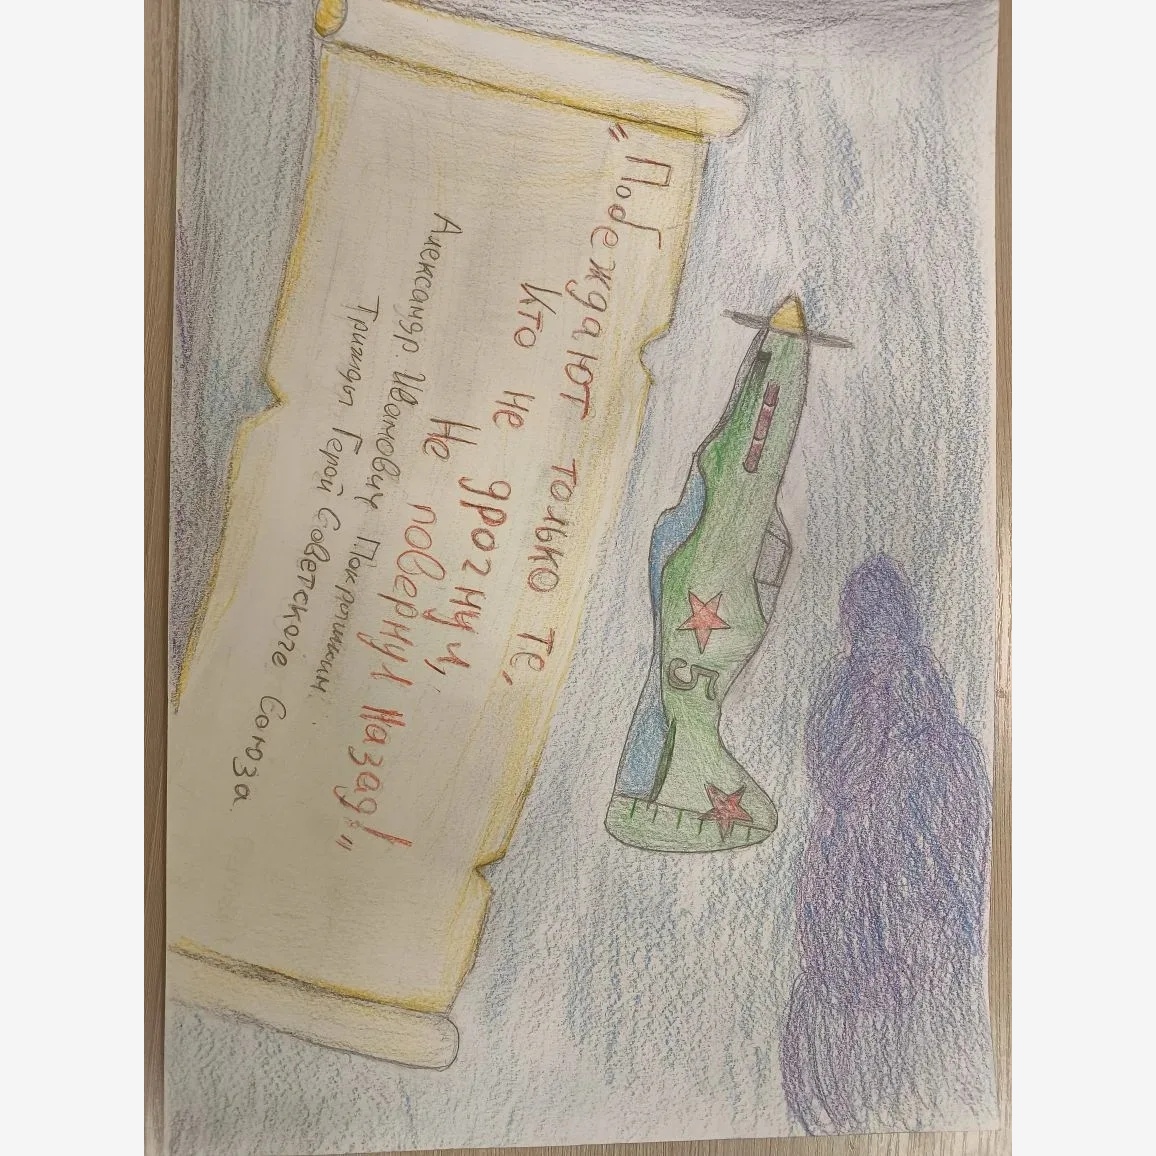 „Побеждают только те,
Кто не дрогнул,
Не повернул назад!"
Александр Иванович Покрышкин.
Трижды Герой Советского Союза.
5